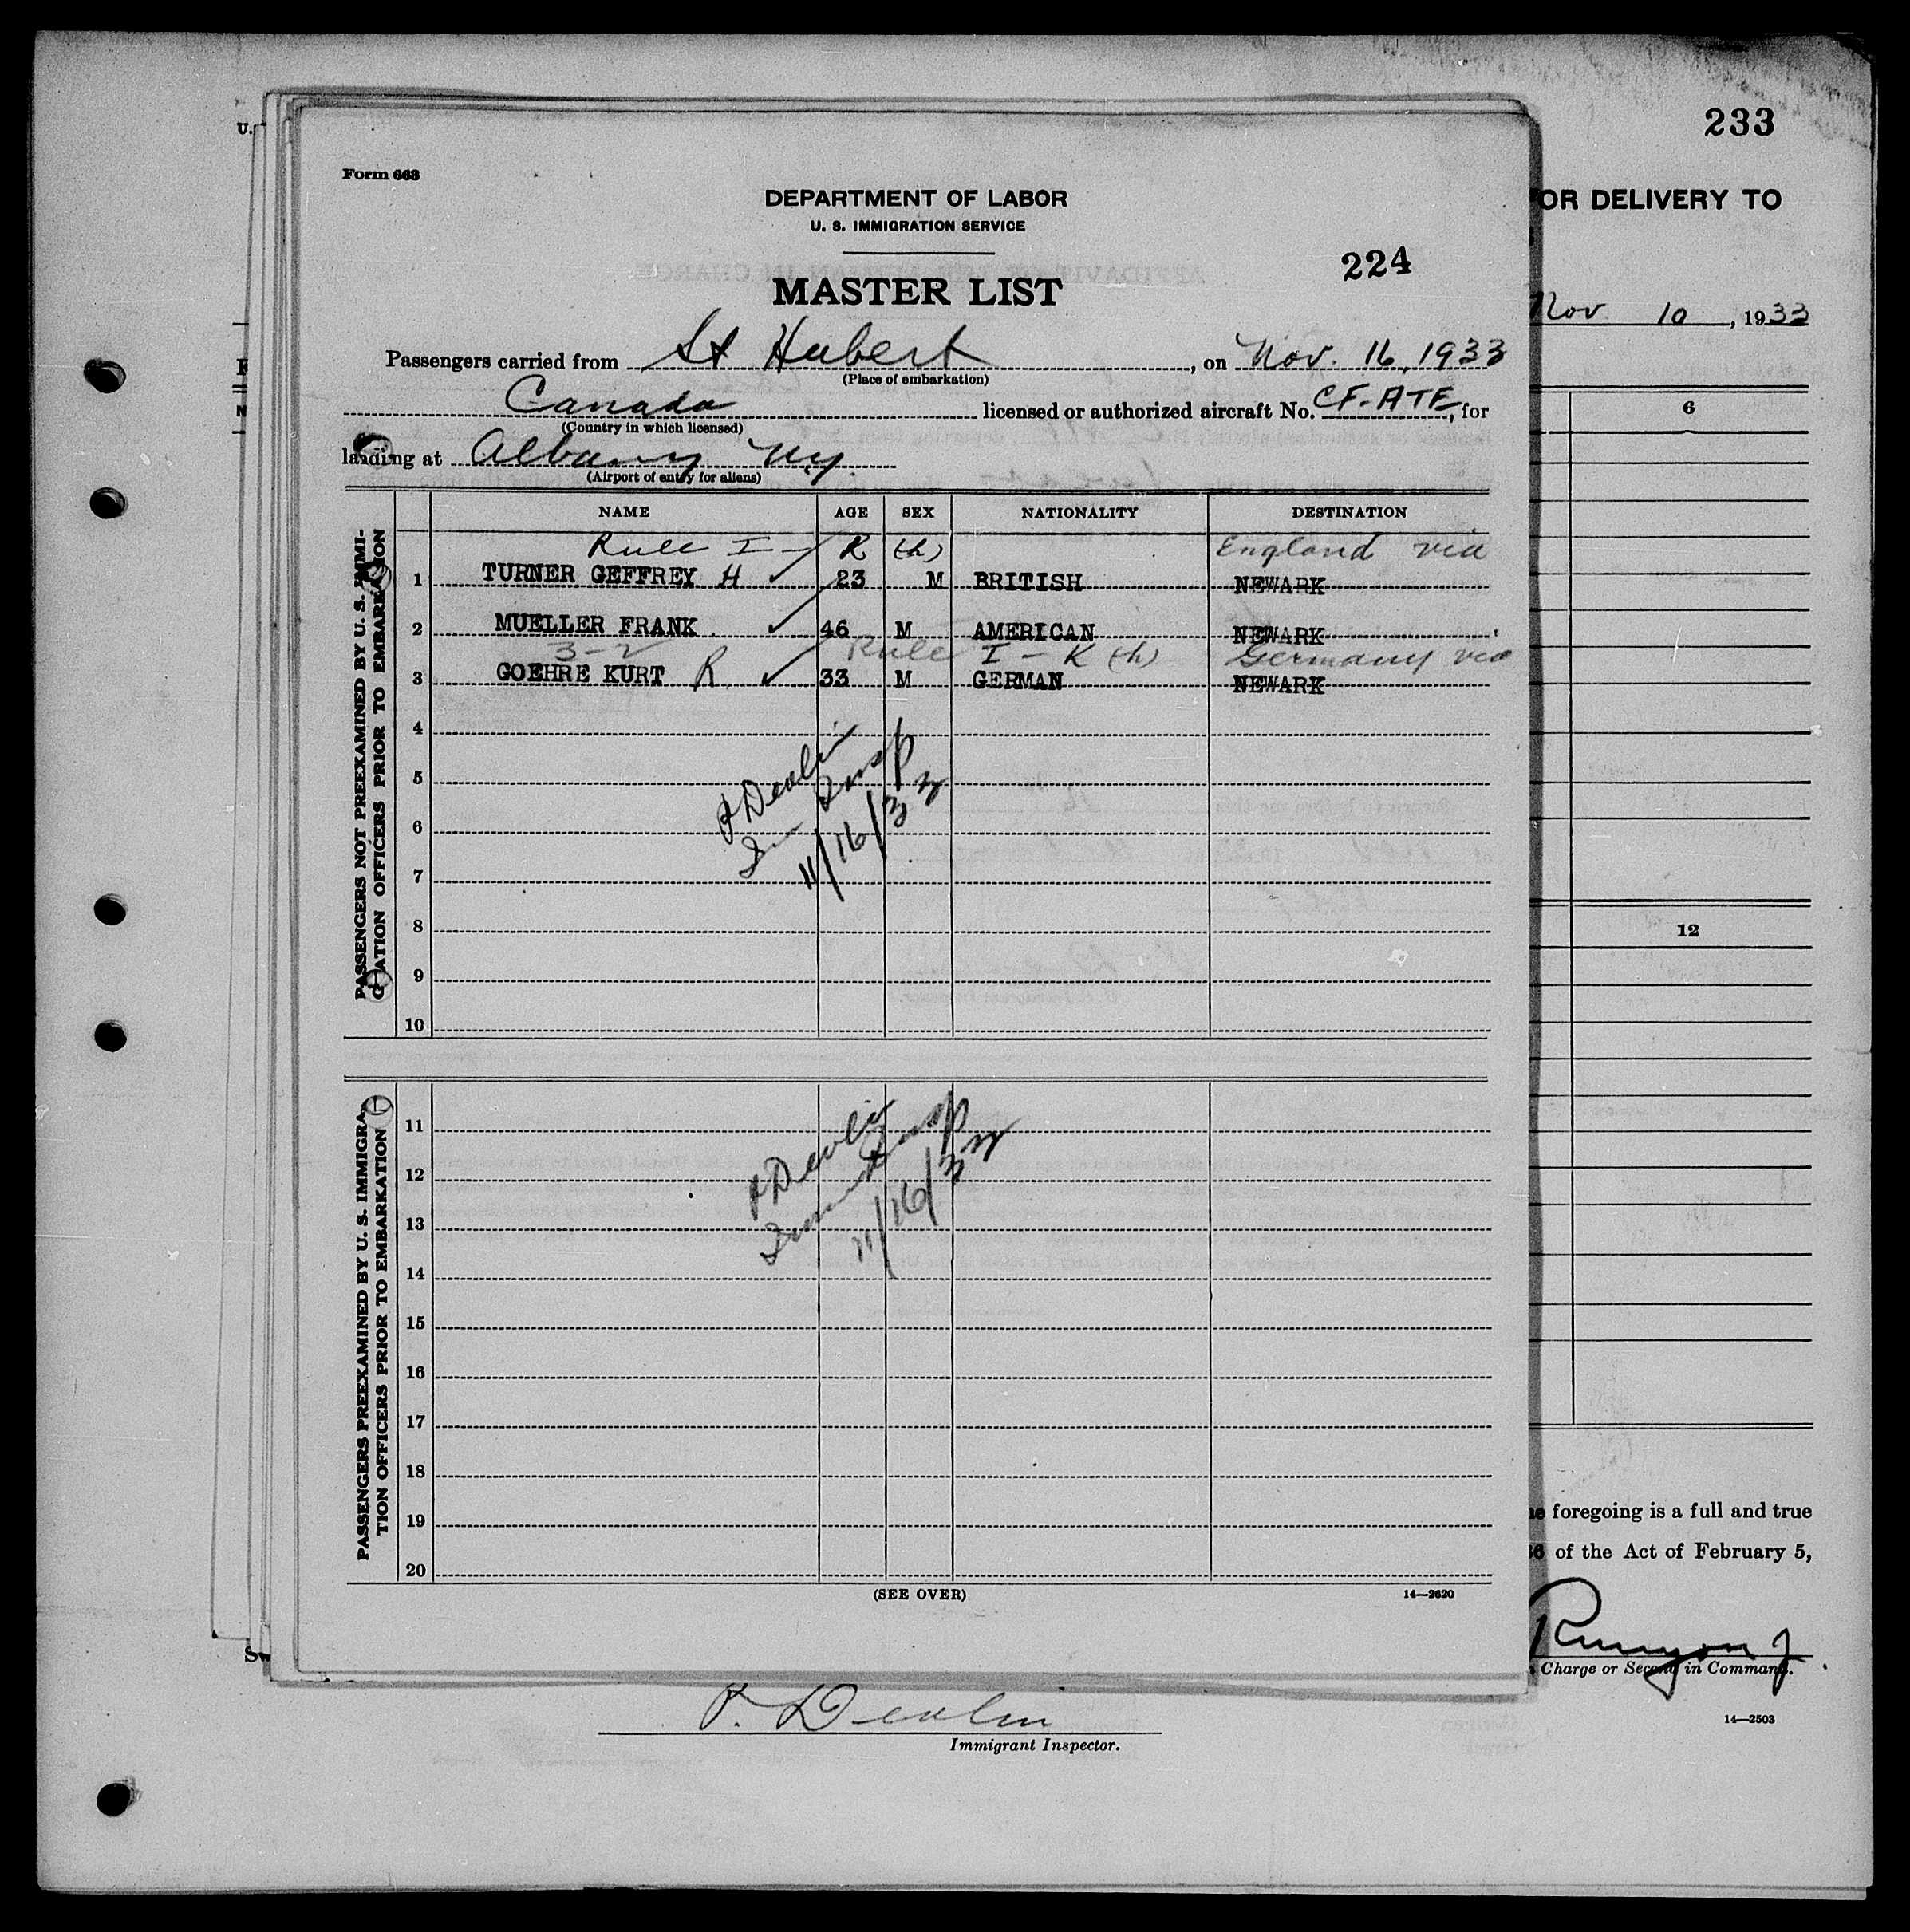 233
U.
OR DELIVERY TO
Form 663
DEPARTMENT OF LABOR
U. S. IMMIGRATION SERVICE
224
MASTER LIST
Nov. 10, 1933
Passengers carried from St Hubert, on Nov. 16, 1933
(Place of embarkation)
Canada licensed or authorized aircraft No. CF-ATE, for
(Country in which licensed)
landing at Albany N.Y.
(Airport of entry for aliens)
6
NAME AGE SEX NATIONALITY DESTINATION
PASSENGERS NOT PREEXAMINED BY U. S. IMMI-
GRATION OFFICERS PRIOR TO EMBARKATION
Rule I - K (h) England via
1 TURNER GEFFREY H 23 M BRITISH NEWARK
2 MUELLER FRANK. 46 M AMERICAN NEWARK
3-2 Rule I - K (h) Germany via
3 GOEHRE KURT R. 33 M GERMAN NEWARK
4
5
6
7
8
9
10
P Devlin
Imm Insp
11/16/33
12
PASSENGERS PREEXAMINED BY U. S. IMMIGRA-
TION OFFICERS PRIOR TO EMBARKATION
11
12
13
14
15
16
17
18
19
20
P Devlin
Imm Insp
11/16/33
(SEE OVER) 14—2620
foregoing is a full and true
of the Act of February 5,
Runyon J
Charge or Second in Command.
14—2503
P. Devlin
Immigrant Inspector.